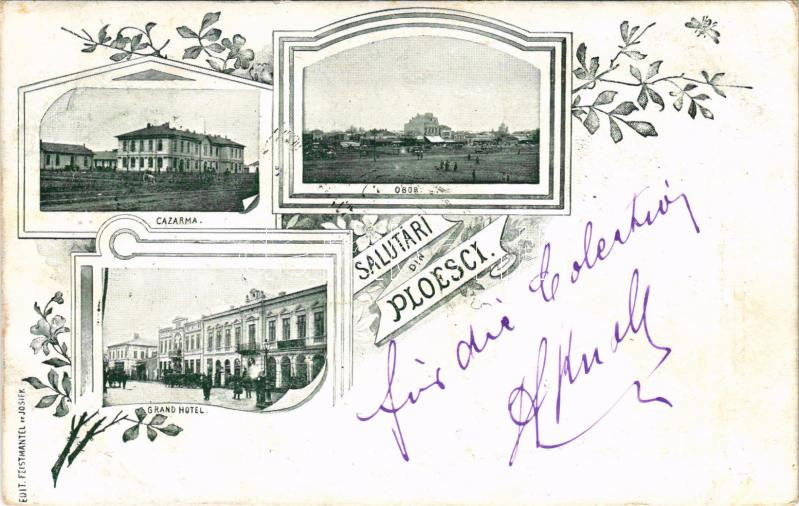 CAZARMA.
OBOR.
SALUTĂRI
DIN
PLOESCI.
GRAND HOTEL.
für die Colection
EDIT. FEISTMANTEL ET JOSIEK